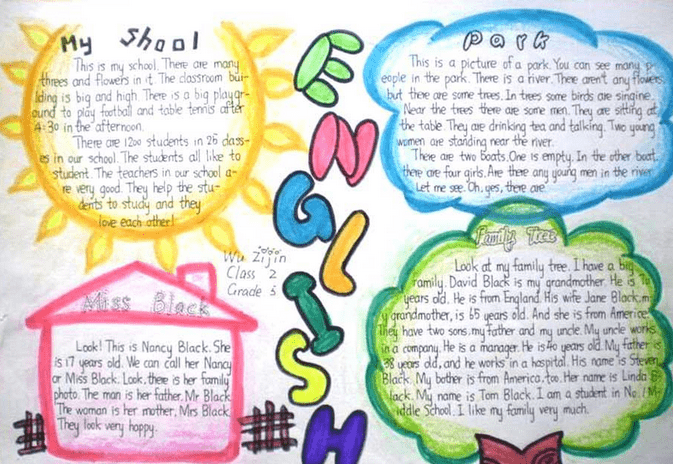 My Shool
This is my school. There are many
threes and flowers in it. The classroom bui-
lding is big and high. There is a big playgr-
ound to play football and table tennis after
4:30 in the afternoon.
There are 1200 students in 25 class-
es in our school. The students all like to
student. The teachers in our school a-
re very good. They help the stu-
dents to study and they
love each other!
ENGLISH
Wu Zijin
Class 2
Grade 3
Park
This is a picture of a park. You can see many p-
eople in the park. There is a river. There aren't any flowers,
but there are some trees. In trees some birds are singine.
Near the trees there are some men. They are sitting at
the table. They are drinking tea and talking. Two young
women are standing near the river.
There are two boats. One is empty. In the other boat
there are four girls. Are there any young men in the river
Let me see. Oh, yes, there are
Miss Black
Look! This is Nancy Black. She
is 17 years old. We can call her Nancy
or Miss Black. Look, there is her family
photo. The man is her father, Mr Black
The woman is her mother, Mrs Black.
They look very happy.
Family Tree
Look at my family tree. I have a big
family. David Black is my grandmother. He is
years old. He is from England. His wife Jane Black, m
y grandmother, is 65 years old. And she is from Americe.
They have two sons, my father and my uncle. My uncle works
in a company. He is a manager. He is 40 years old. My father is
38 years old, and he works in a hospital. His name is Steven
Black. My bother is from America, too. Her name is Linda B-
lack. My name is Tom Black. I am a student in No. 1 M-
iddle School. I like my family very much.